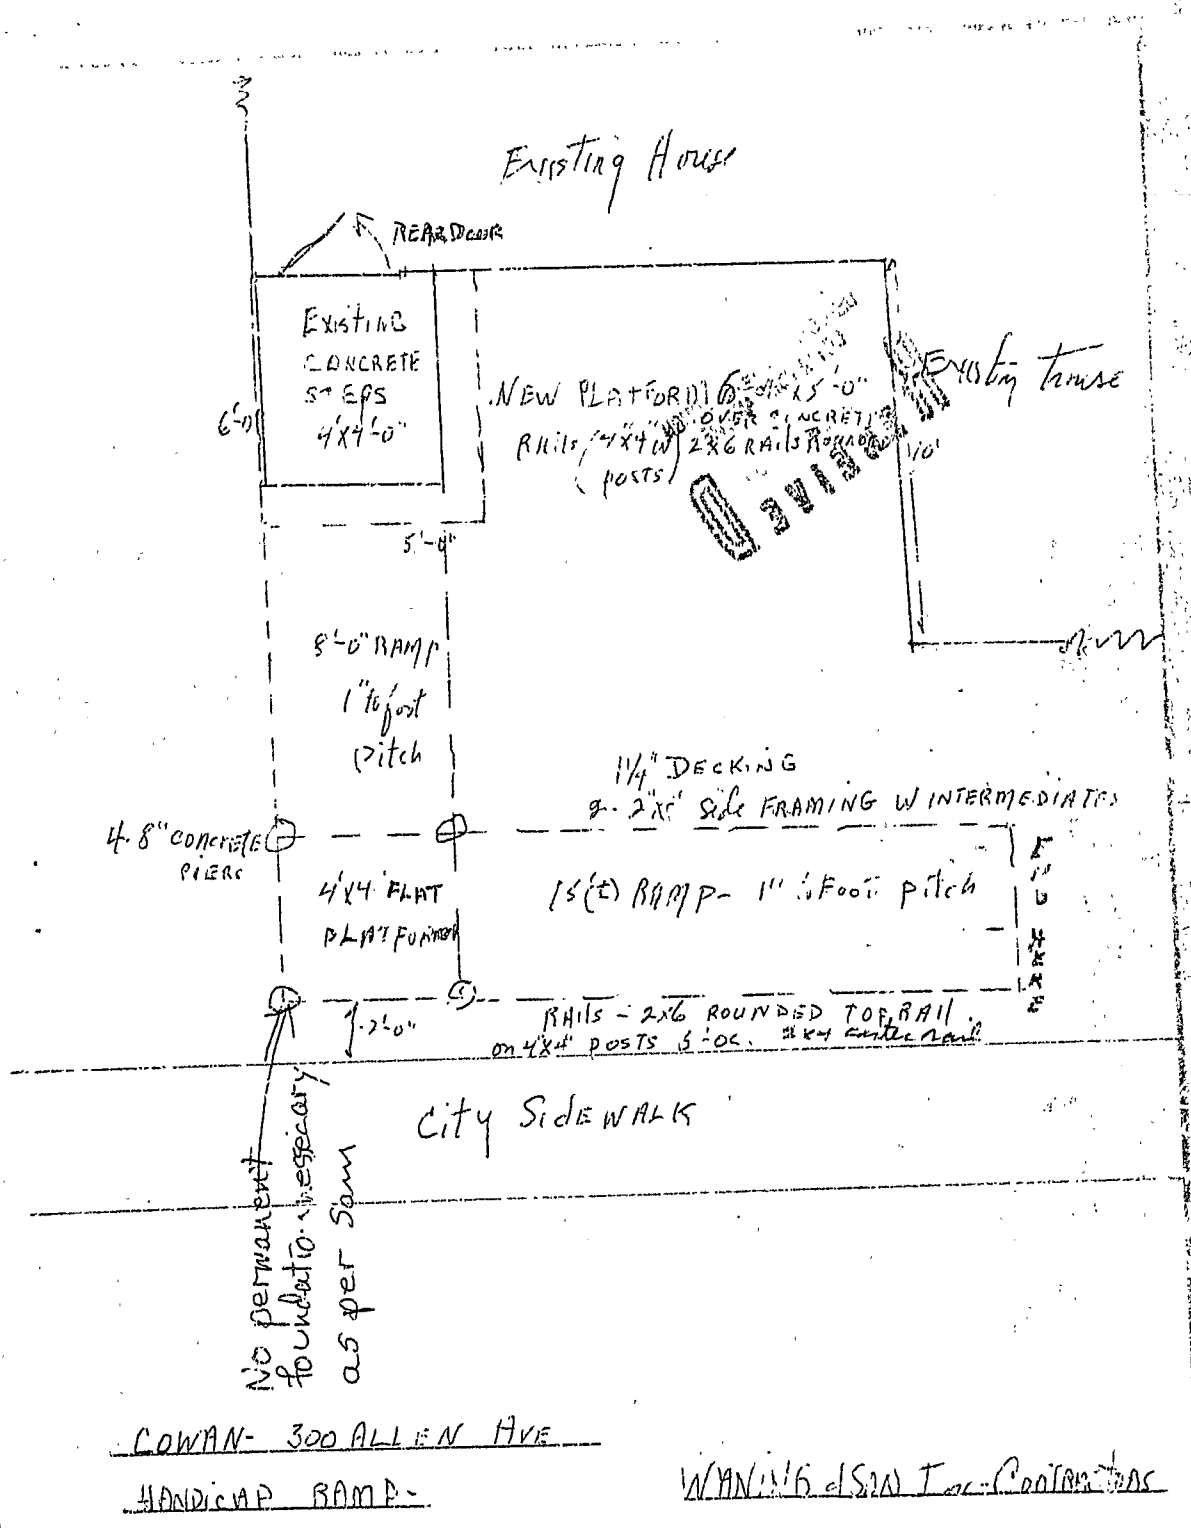 Existing House
REAR DOOR
EXISTING
CONCRETE
STEPS
4'X4'-0"
6'-0"
NEW PLATFORM 6'-0" X 5'-0"
OVER CONCRETE
Rails (4"X4" W) 2X6 RAils ROUNDED
posts
Existing House
10'
5'-0"
8'-0" RAMP
1" to foot
pitch
1¼" DECKING
2- 2"x8" Side FRAMING W INTERMEDIATES
4-8" CONCRETE
PIERS
4'X4' FLAT
PLATFORM
15(±) RAMP- 1" to Foot pitch
2'-0"
RAils - 2x6 ROUNDED TOP RAil
on 4"X4" posts 5'-OC. 2x4 center rail
City SidEWALK
No permanent
foundation nessicary
as per Sam
COWAN- 300 ALLEN AVE
HANDiCAP RAMP-
WANING & SON Inc-CONTRACTORS